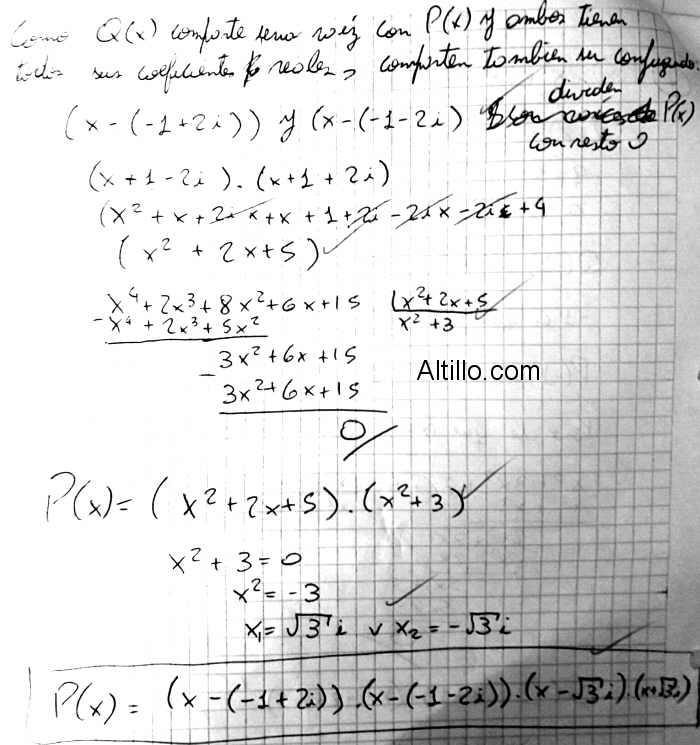 Como Q(x) comparte una raíz con P(x) y ambos tienen
todos sus coeficientes reales, comparten tambien su conjugado.
(x-(-1+2i)) y (x-(-1-2i) dividen P(x)
con resto 0
(x+1-2i).(x+1+2i)
(x²+x+2ix+x+1+2i-2ix-2i+4
(x²+2x+5)
x⁴+2x³+8x²+6x+15 | x²+2x+5
-x⁴+2x³+5x² x²+3
3x²+6x+15
-3x²+6x+15
0
Altillo.com
P(x)=(x²+2x+5).(x²+3)
x²+3=0
x²=-3
x₁=√3 i v x₂=-√3 i
P(x)=(x-(-1+2i)).(x-(-1-2i)).(x-√3 i).(x+√3 i)